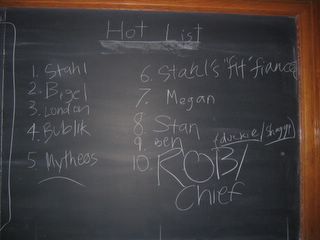 Hot List
1. Stahl
2. Bigel
3. London
4. Bublik
5. Nytheos
6. Stahl's "fit" fiancé
7. Megan
8. Stan
9. Ben (duckie/shaggy)
10. ROB/
Chief